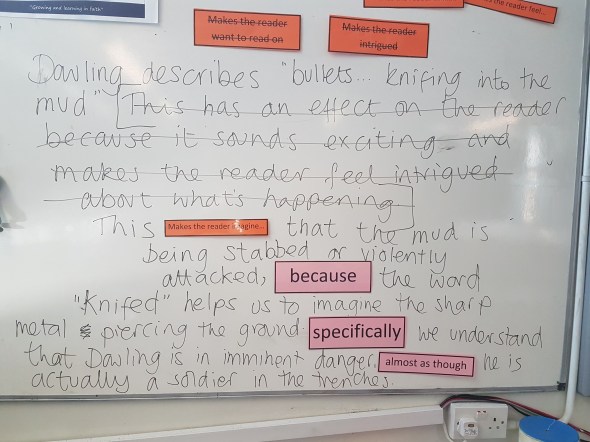 "Growing and learning in faith"
Makes the reader
want to read on
Makes the reader
intrigued
the reader feel...
Dawling describes "bullets... knifing into the
mud" This has an effect on the reader
because it sounds exciting and
makes the reader feel intrigued
about what's happening
This Makes the reader imagine... that the mud is
being stabbed or violently
attacked, because the word
"Knifed" helps us to imagine the sharp
metal piercing the ground. specifically we understand
that Dawling is in imminent danger, almost as though he is
actually a soldier in the trenches.